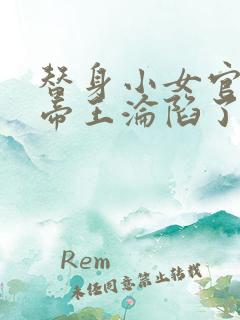 替身小女官
帝王淪陷了
Rem
未經同意禁止轉載